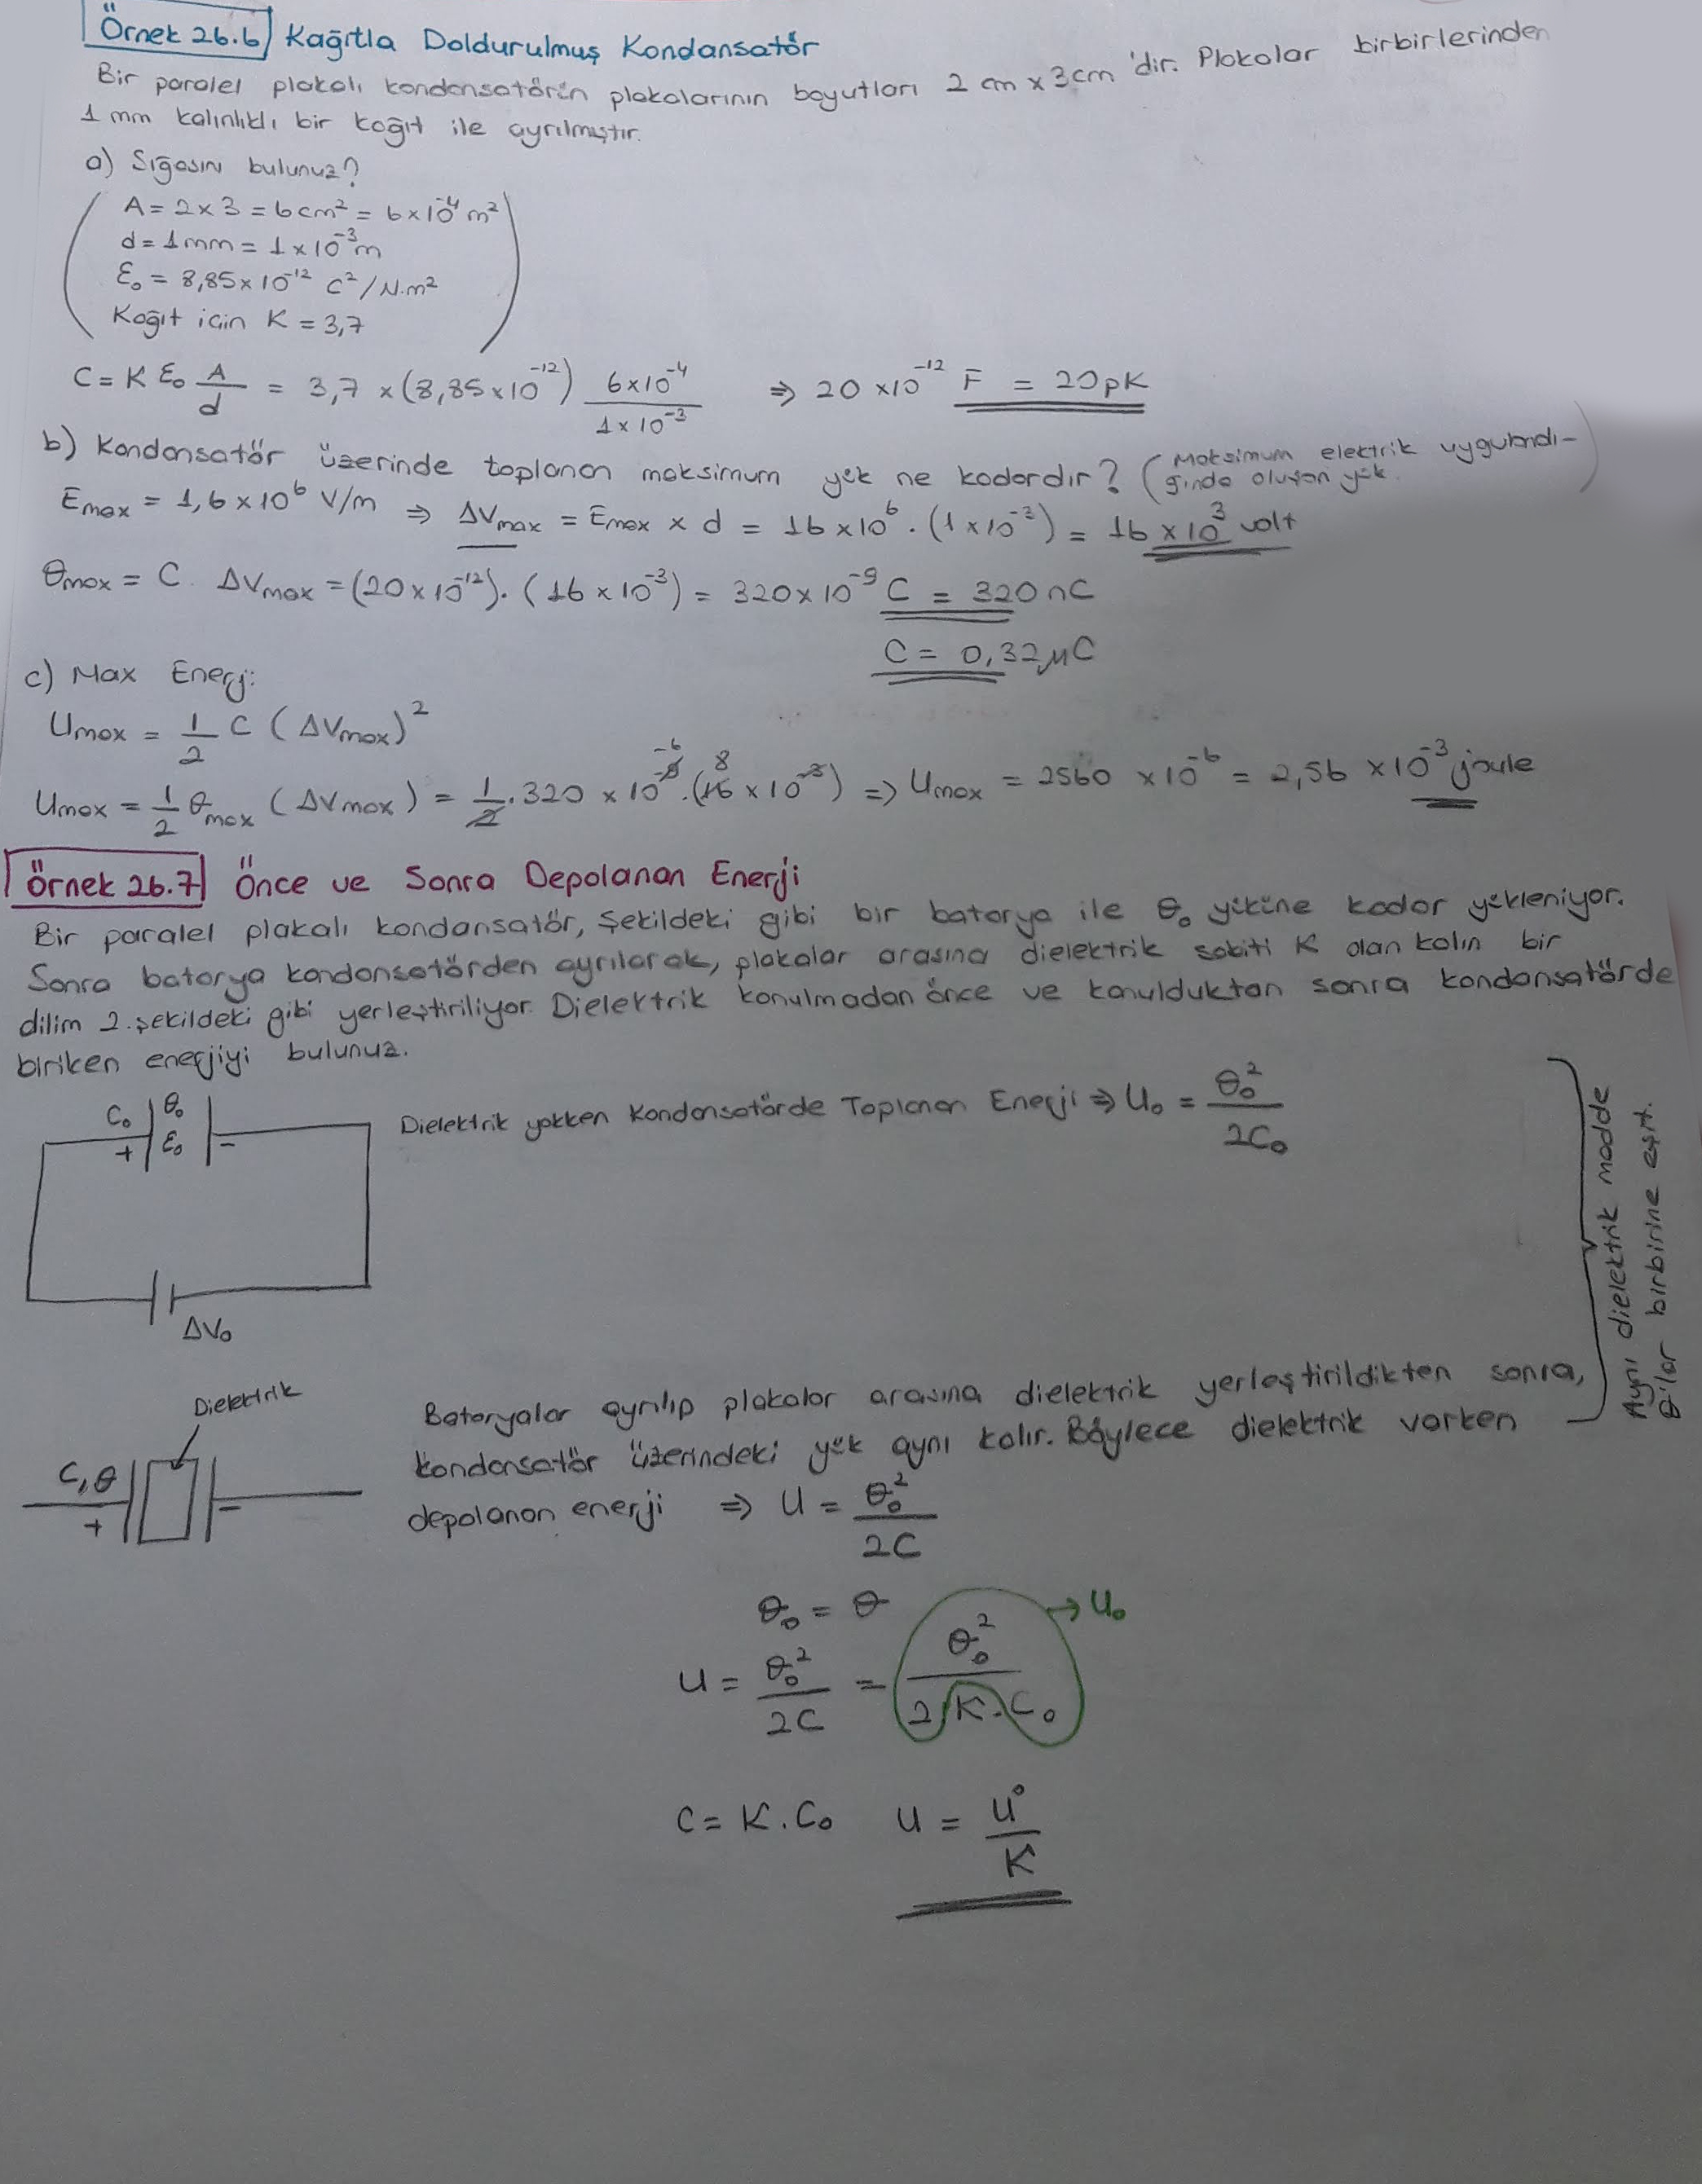 Örnek 26.6 Kağıtla Doldurulmuş Kondansatör
Bir paralel plakalı kondansatörün plakalarının boyutları 2 cm x 3cm 'dir. Plakalar birbirlerinden
1 mm kalınlıklı bir kağıt ile ayrılmıştır.
a) Sığasını bulunuz?
A = 2 x 3 = 6 cm² = 6x10⁻⁴ m²
d = 1mm = 1 x 10⁻³ m
ε₀ = 8,85 x 10⁻¹² C² / N.m²
Kağıt için K = 3,7
C = K ε₀ A/d = 3,7 x (8,85 x 10⁻¹²) 6x10⁻⁴ / 1x10⁻³ ⇒ 20 x10⁻¹² F = 20pK
b) Kondansatör üzerinde toplanan maksimum yük ne kadardır? (Maksimum elektrik uygulandı-
ğında oluşan yük.)
Emax = 1,6 x 10⁶ V/m ⇒ ΔVmax = Emax x d = 16 x10⁶ . (1 x10⁻³) = 16 x 10³ volt
Θmax = C. ΔVmax = (20 x 10⁻¹²). (16 x 10⁻³) = 320 x 10⁻⁹ C = 320 nC
C = 0,32 μC
c) Max Enerji:
Umax = 1/2 C (ΔVmax)²
Umax = 1/2 Θmax (ΔVmax) = 1/2 . 320 x 10⁻⁶ . (16 8 x 10⁻³) ⇒ Umax = 2560 x 10⁻⁶ = 2,56 x 10⁻³ joule
Örnek 26.7 Önce ve Sonra Depolanan Enerji
Bir paralel plakalı kondansatör, şekildeki gibi bir batarya ile Θ₀ yüküne kadar yükleniyor.
Sonra batarya kondansatörden ayrılarak, plakalar arasına dielektrik sabiti K olan kalın bir
dilim 2. şekildeki gibi yerleştiriliyor. Dielektrik konulmadan önce ve konulduktan sonra kondansatörde
biriken enerjiyi bulunuz.
C₀ Θ₀
+ ε₀ -
ΔV₀
Dielektrik yokken Kondansatörde Toplanan Enerji ⇒ U₀ = Θ₀² / 2C₀
Aynı dielektrik madde
Θ'lar birbirine eşit.
Dielektrik
C, Θ
+ -
Bataryalar ayrılıp plakalar arasına dielektrik yerleştirildikten sonra,
kondansatör üzerindeki yük aynı kalır. Böylece dielektrik varken
depolanan enerji ⇒ U = Θ₀² / 2C
Θ₀ = Θ
U = Θ₀² / 2C = Θ₀² / 2.K.C₀ → U₀
C = K.C₀ U = U° / K